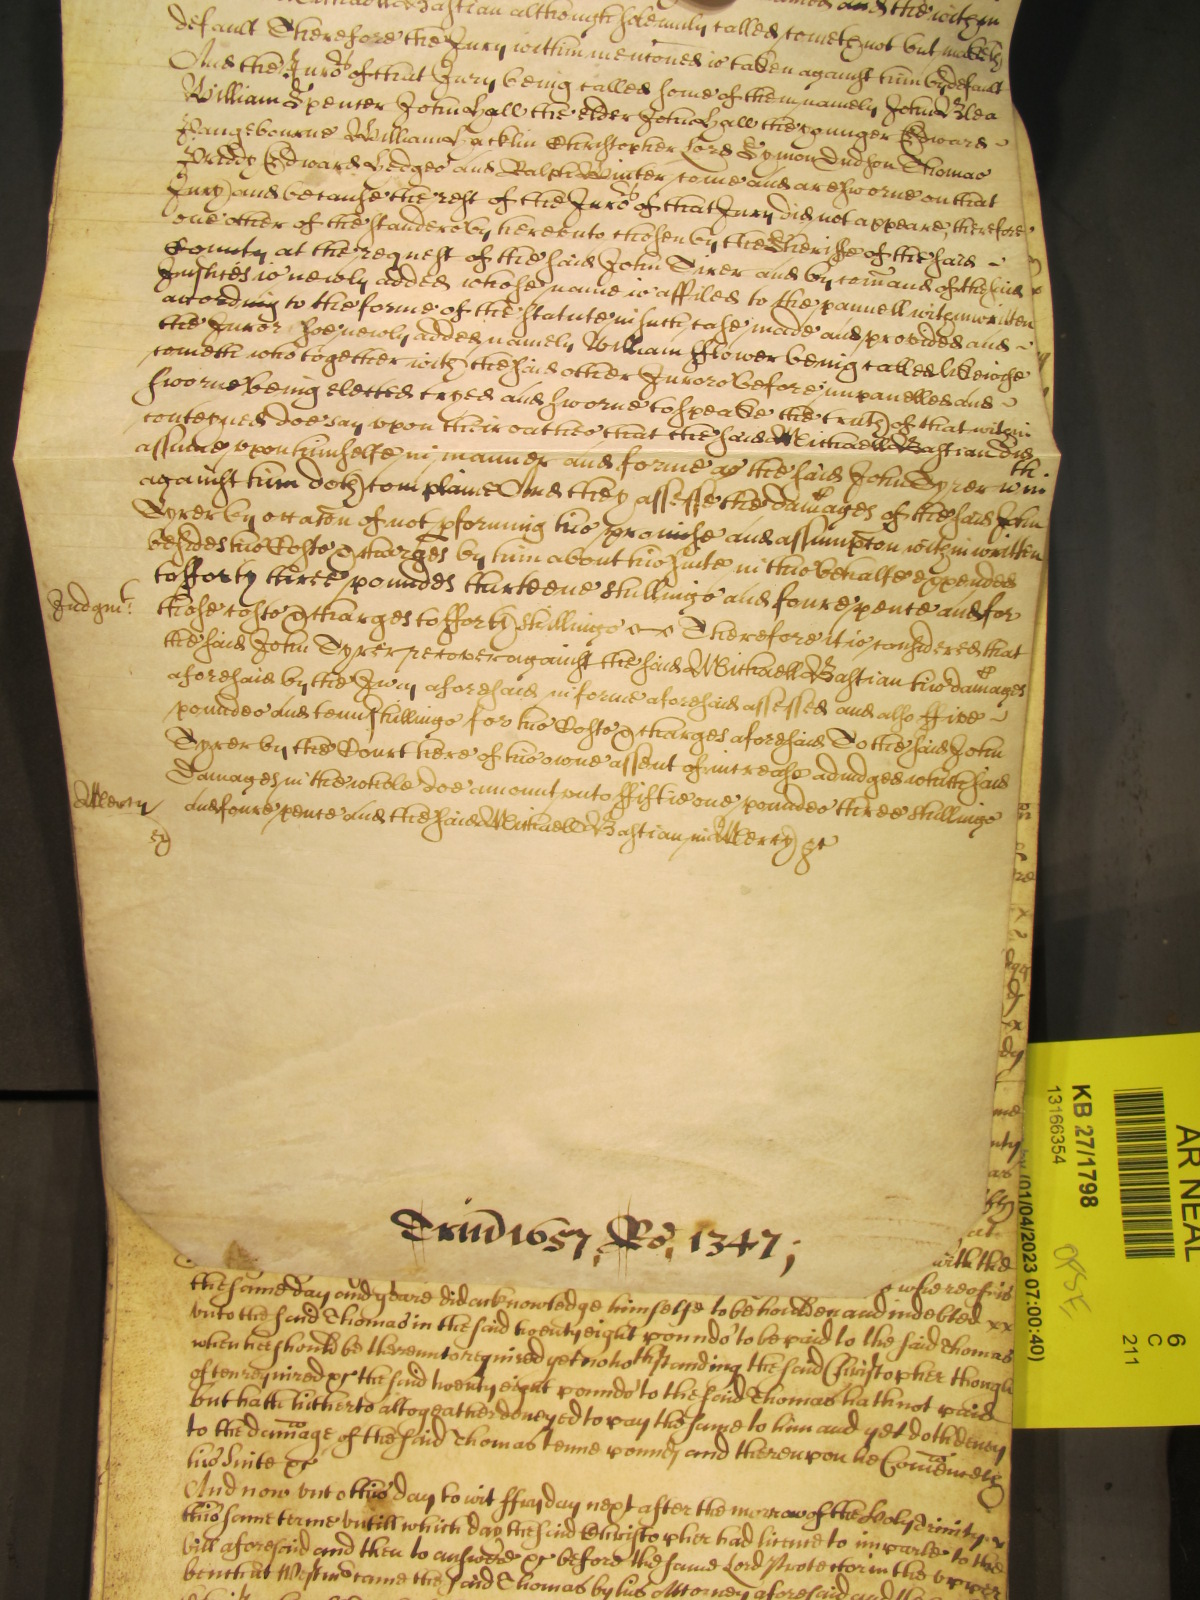 Michaell Bastian although solemnly called cometh not but maketh
default Therefore the Jury within mentoned is taken against him by default
And the Juro.rs of that Jury being called some of them namely John Blea
William Spencer John Hall the elder John Hall the younger Edward
Pangebourne William Christopher Lord Symon Dudson Thomas
Priddy Edward Hedges and Ralph Winter come and are sworne on that
Jury and because the rest of the Juro.rs of that Jury did not appeare, therefore
one other of the standers by hereento chosen by the Sheriffe of the said
County at the request of the said John Tirer and by comand of the said
Justices is newly added whose name is affiled to the pannell within written
according to the forme of the statute in such case made and provided and
the Juror soe newly added namely William Flower being called likewise
cometh who together with the said other Jurors before impanelled and
sworne being elected tryed and sworne to speake the truth of that within
conteyned doe say upon their oathes that the said Michaell Bastian did
assume upon himselfe in manner and forme as the said John Tyrer within
against him doth complaine And they assesse the damages of the said John
Tyrer by occasion of not pforming his promise and assumpcon within written
besides his Costs & charges by him about his suite in this behalfe expended
to fforty three poundes thirteene shillings and foure pence and for
Judgmt.
those costs & charges to fforty shillings Therefore it is considered that
the said John Tyrer recover against the said Michaell Bastian his damages
aforesaid by the Jury aforesaid in forme aforesaid assessed and also ffive
poundes and tenn shillings for his Costs & charges aforesaid To the said John
Tyrer by the Court here of his owne assent of increase adjudged which said
damages in the whole doe amount unto ffiftie one poundes three shillings
Mercy
and foure pence and the said Michaell Bastian in Mercy &c
Trin 1657, Ro, 1347;
with the
whereof is
the same day and yeare did acknowledge himselfe to be houlden and indebted xx
unto the said Thomas in the said twenty eight pounds to be paid to the said Thomas
when he should be thereunto required yet notwithstanding the said Christopher though
often required &c the said twenty eight pounds to the said Thomas hath not paid
but hath hitherto altogeather denyed to pay the same to him and yet doth deny
to the damage of the said Thomas tenne pounds and thereupon he
his suite &c
And now unto this day to wit ffryday next after the morrow of the Holy Trinity
this same terme untill which day the said Christopher had licence to imparle to the
bill aforesaid and then to answere &c before the same Lord Protector in the upper
bench at Westmr came the said Thomas by his Attorney aforesaid and the
AR NEAL
KB 27/1798
13166354
(01/04/2023 07:00:40)
6
C
211